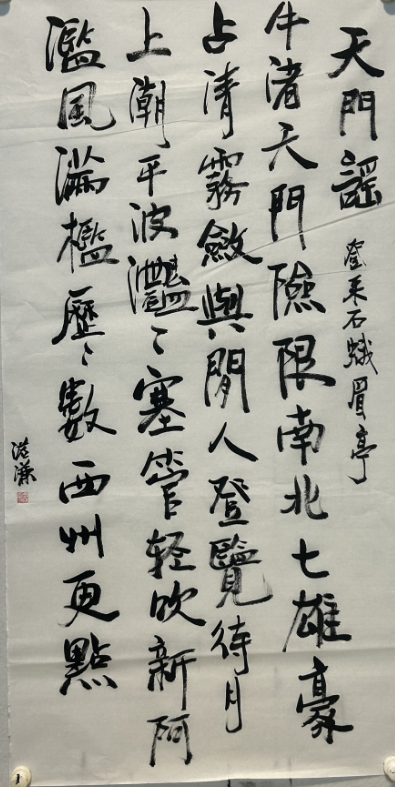 天門謡
登采石蛾眉亭
牛渚天門險限南北七雄豪
占清霧斂與閒人登覽待月
上潮平波灧〻塞管轻吹新阿
濫風滿檻歷〻數西州更點